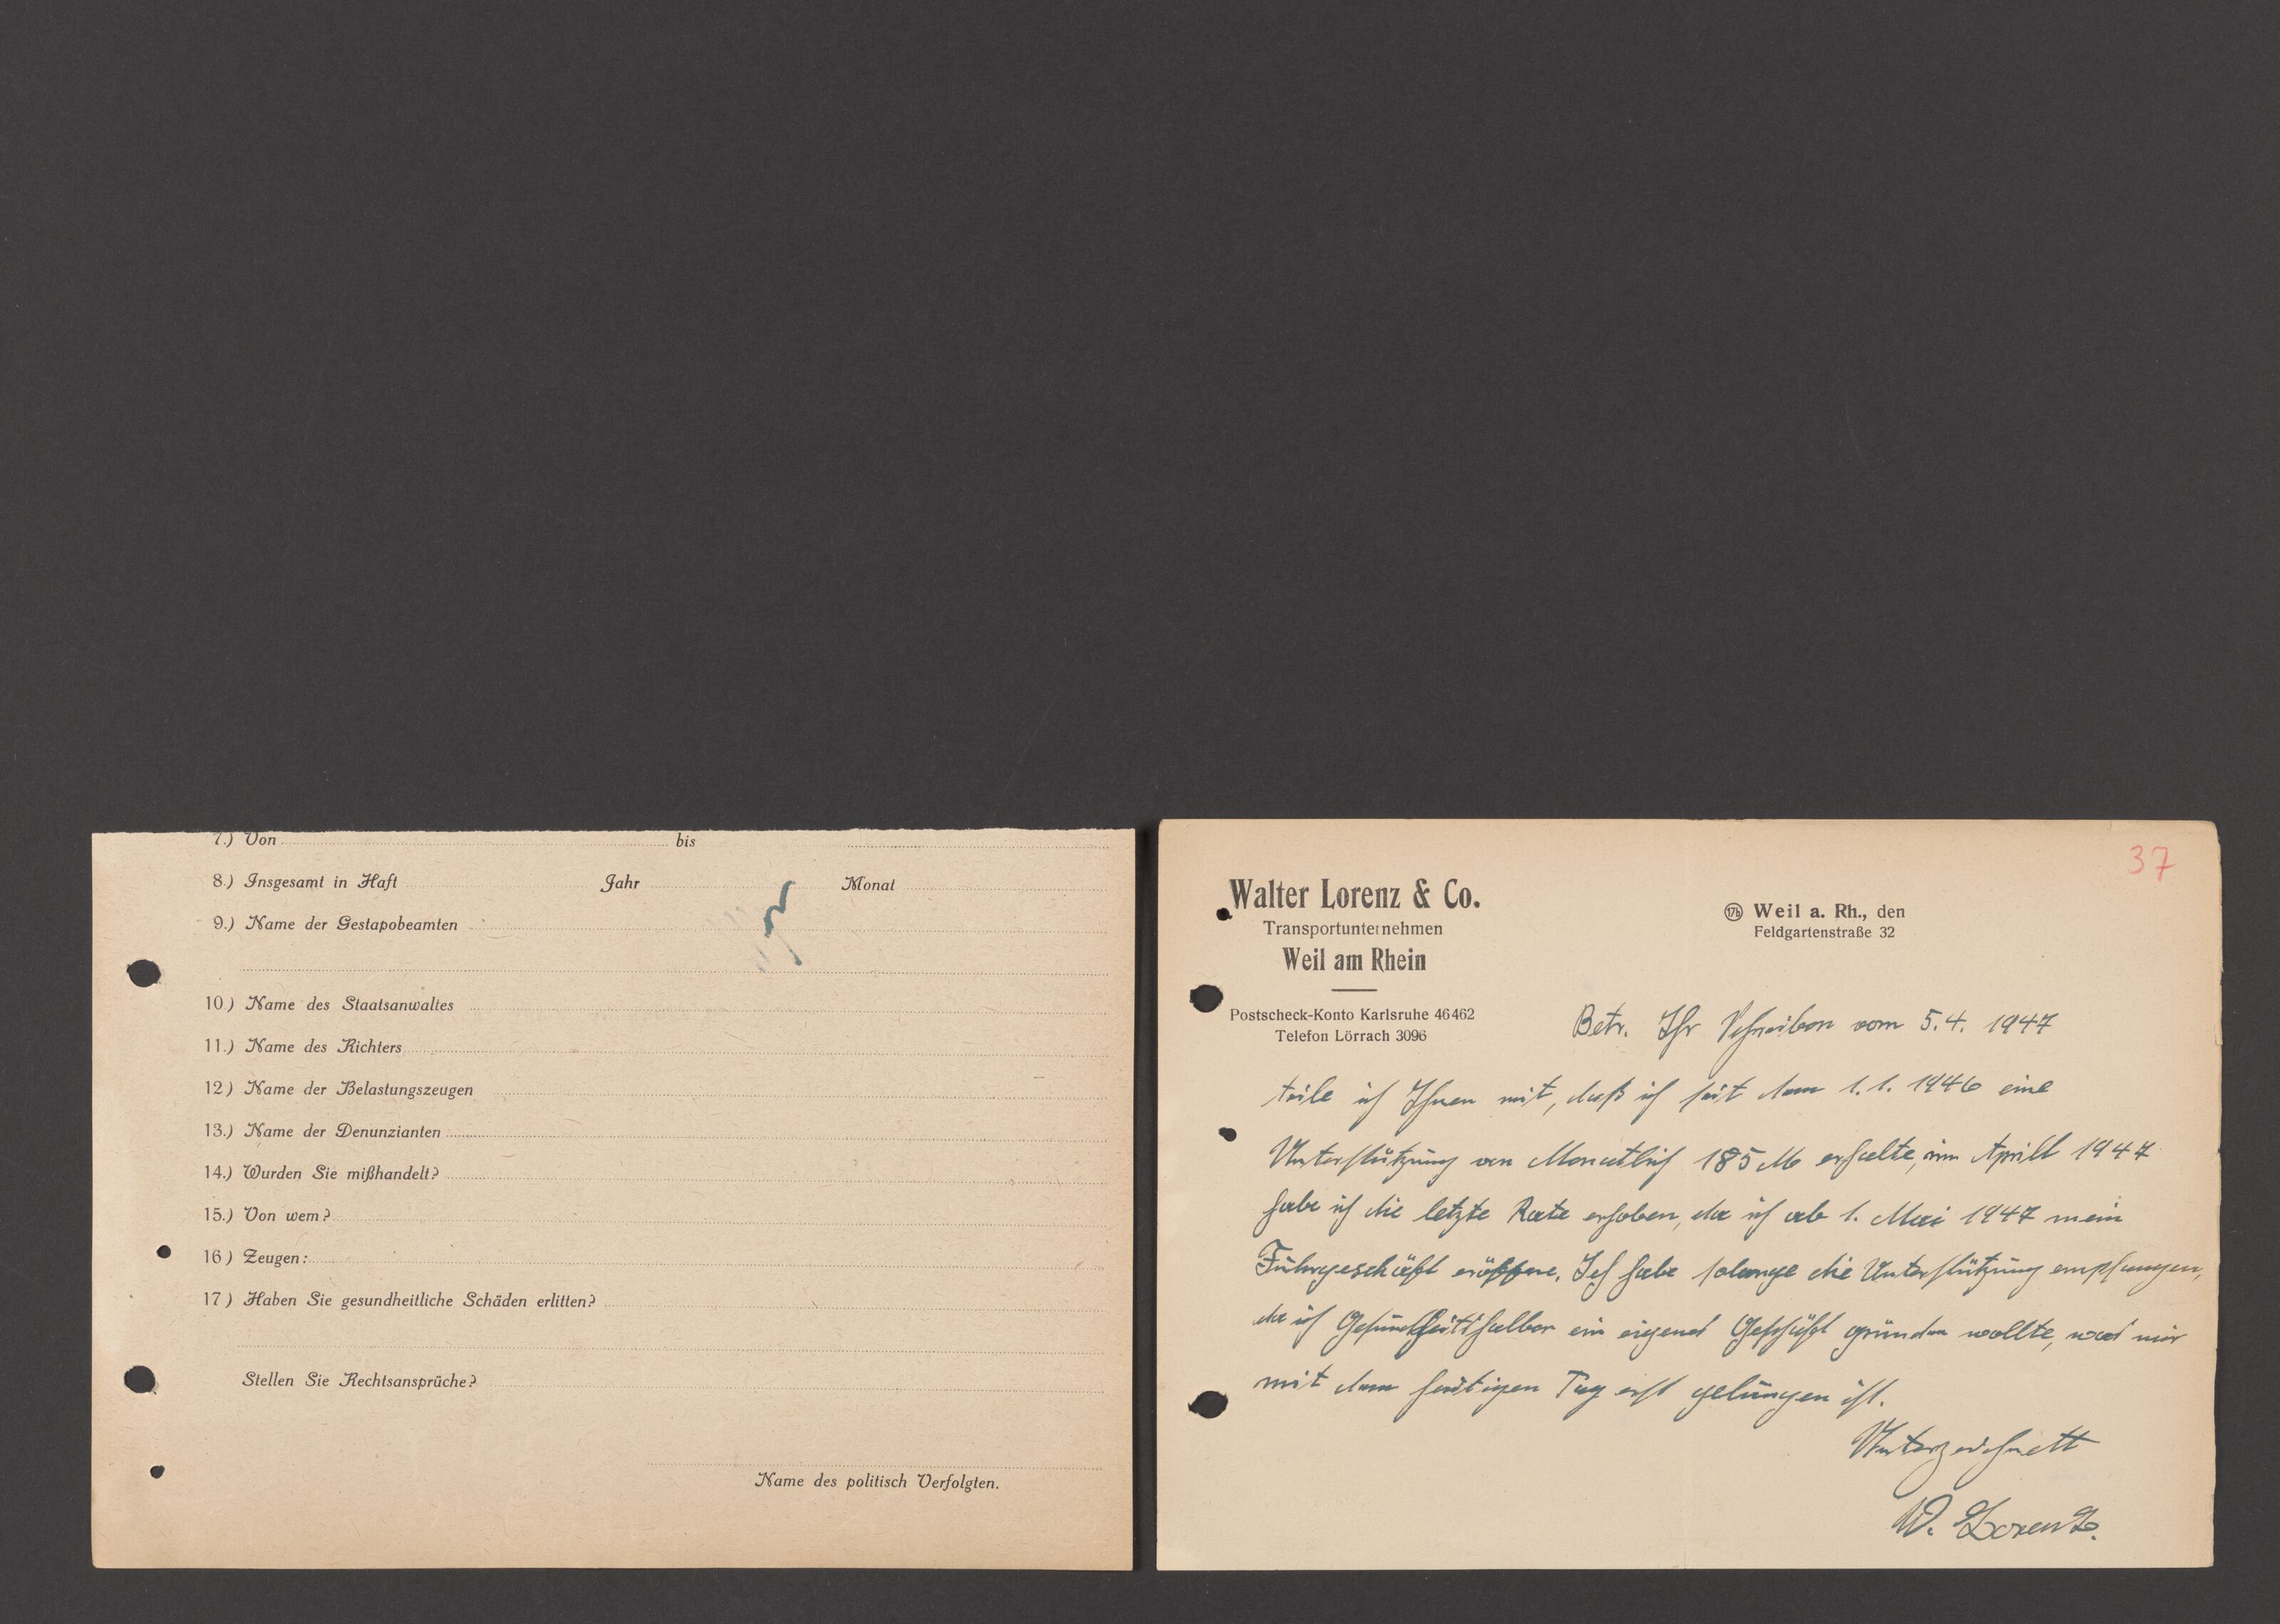 7.) Von bis
8.) Insgesamt in Haft Jahr Monat
9.) Name der Gestapobeamten
10.) Name des Staatsanwaltes
11.) Name des Richters
12) Name der Belastungszeugen
13.) Name der Denunzianten
14.) Wurden Sie mißhandelt?
15.) Von wem?
16) Zeugen:
17) Haben Sie gesundheitliche Schäden erlitten?
Stellen Sie Rechtsansprüche?
Name des politisch Verfolgten.
37
Walter Lorenz & Co.
Transportunternehmen
Weil am Rhein
Postscheck-Konto Karlsruhe 46462
Telefon Lörrach 3096
17b Weil a. Rh., den
Feldgartenstraße 32
Betr. Ihr Schreiben vom 5.4. 1947
teile ich Ihnen mit, daß ich seit dem 1.1. 1946 eine
Unterstützung von Monatlich 185 M erhalte, im Aprill 1947
habe ich die letzte Rate erhoben, da ich ab 1. Mai 1947 mein
Fuhrgeschäft eröffne. Ich habe solange die Unterstützung empfangen,
da ich Gesundheitshalber ein eigenes Geschäft gründen wollte, was mir
mit dem heutigen Tag erst gelungen ist.
Unterzeichnett
W. Lorenz.